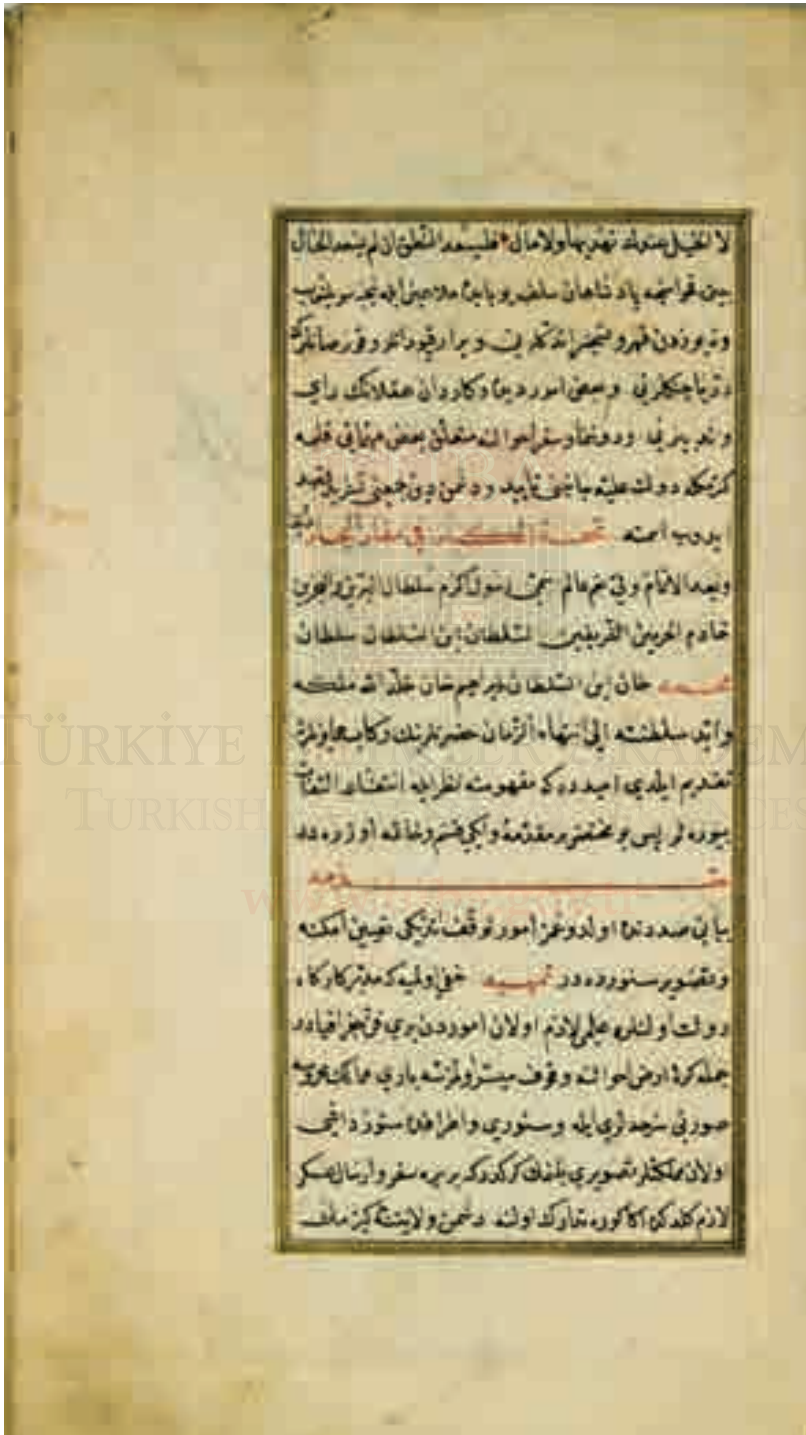 لا الخيل عندك تهديها ولا مال فليسعد النطق ان لم يسعد الحال
بيتی فحواسنجه پادشاهان سلف بو بابده
وتيوزدن قهر و تسخير ايتدكلرين و يرار قپودانلر و قورصانلرك
دريا جنكلرنی و بعضی امور ديده و كاردان عقلانك رای
و تدبيرنی و دوننما و سفر احوالنه متعلق بعض مهماتی قلمه
كتوركه دولت عليه باغنی تأييد و دشمن دين
ايدوب اسمنه تحفة الكبار فی اسفار البحار
وبعد الاتمام ولی نعم عالم سمی رسول اكرم سلطان البرين والبحرين
خادم الحرمين الشريفين السلطان ابن السلطان سلطان
محمد خان ابن السلطان ابراهيم خان خلد الله ملكه
وابد سلطنته الی انتهاء الزمان حضرتلرينك ركاب همايونلرينه
تقديم ايلدی اميددركه مفهومنه نظر ايله التفات
بيوره لر پس بو مختصر بر مقدمه و ايكی قسم و خاتمه اوزره در
مقدمه
بيانی صددنده اولدوغمز امور توقف ايتديكی تعيين امكنه
و تصوير سنورده در تمهيد خفی اولميه كه مدبر كاركاه
دولت اولنلره علمی لازم اولان اموردن بری فن جغرافيادر
جمله كرۀ ارض احوالنه وقوف ميسر اولمزسه باری ممالك محروسه
صورتی سرحدلری ايله و سنوری و اطرافنده سنورداشی
اولان مملكتلر تصويری بلنمك كركدركه بر يره سفر و ارسال عسكر
لازم كلدكده اكا كوره تدارك اولنه دشمن ولايتنه كيرمك
TÜRKİYE
TURKISH